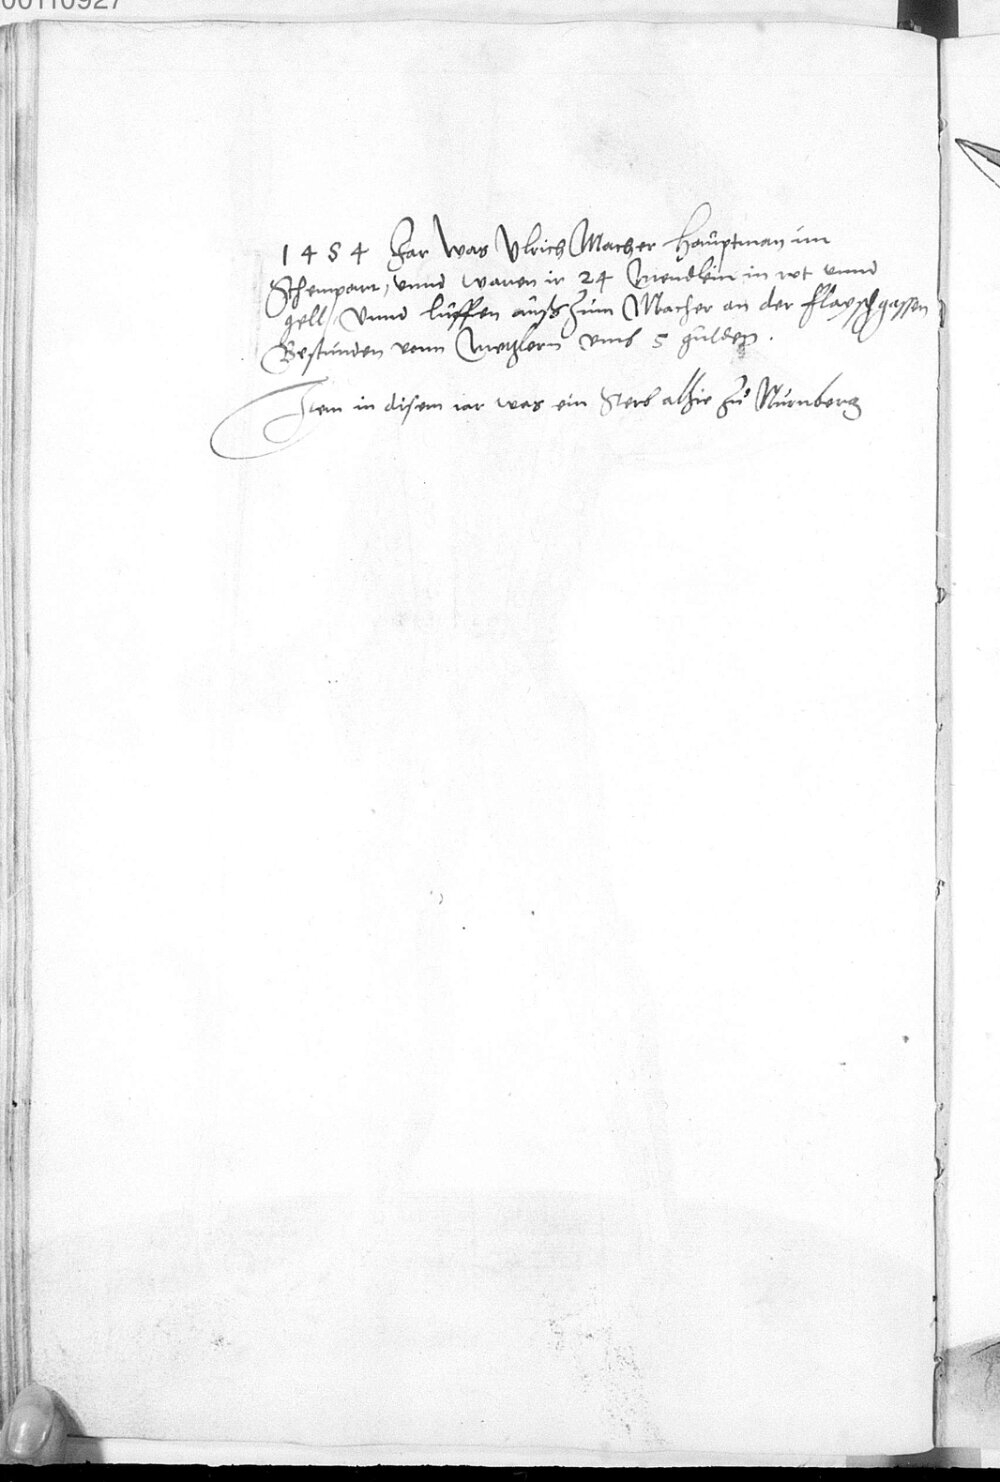 00110927
1454 Jar was Ulrich Macher Haŭptman im
Schempart, vnnd waren ir 24 Mendlein in rot vnnd
gell, Vnnd lŭffen aŭß zŭm Macher an der flayschgassen
Bestŭnden vonn Metzlern vmb 5 gŭlden.
Item in disem iar was ein Sterb alhie zŭ Nŭrnberg